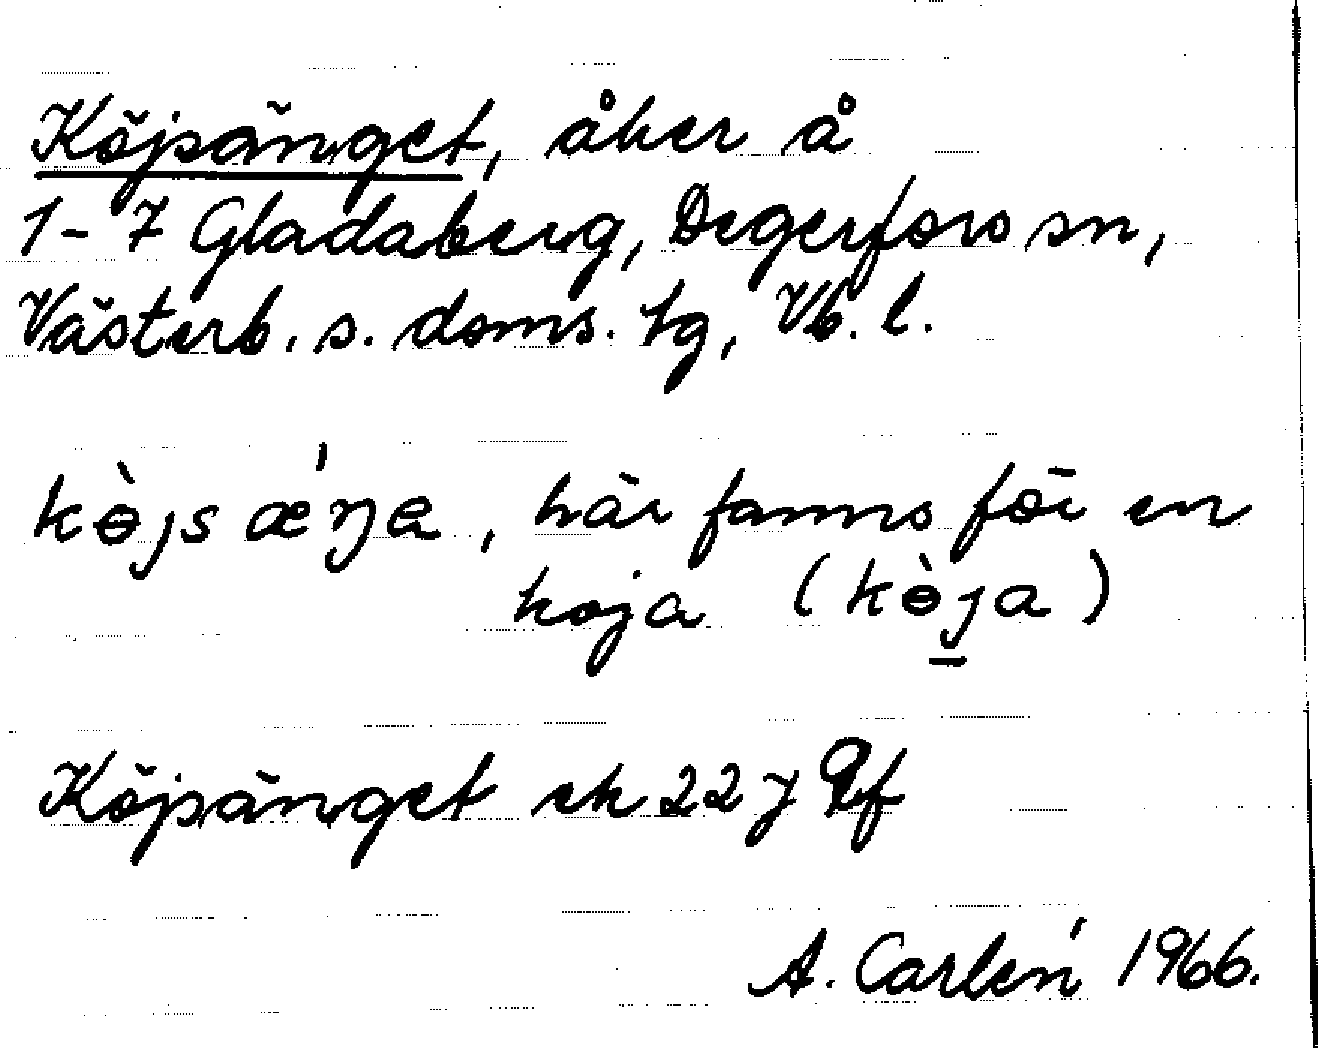 Köjsänget, åker å
1-7 Gladaberg, Degerfors sn,
Västerb. s. doms. tg, Vb. l.
kɵ̀jsǽŋa, här fanns för en
koja (kɵ̀j̱a)
Köjsänget ek 22 J 9f
A. Carlén 1966.